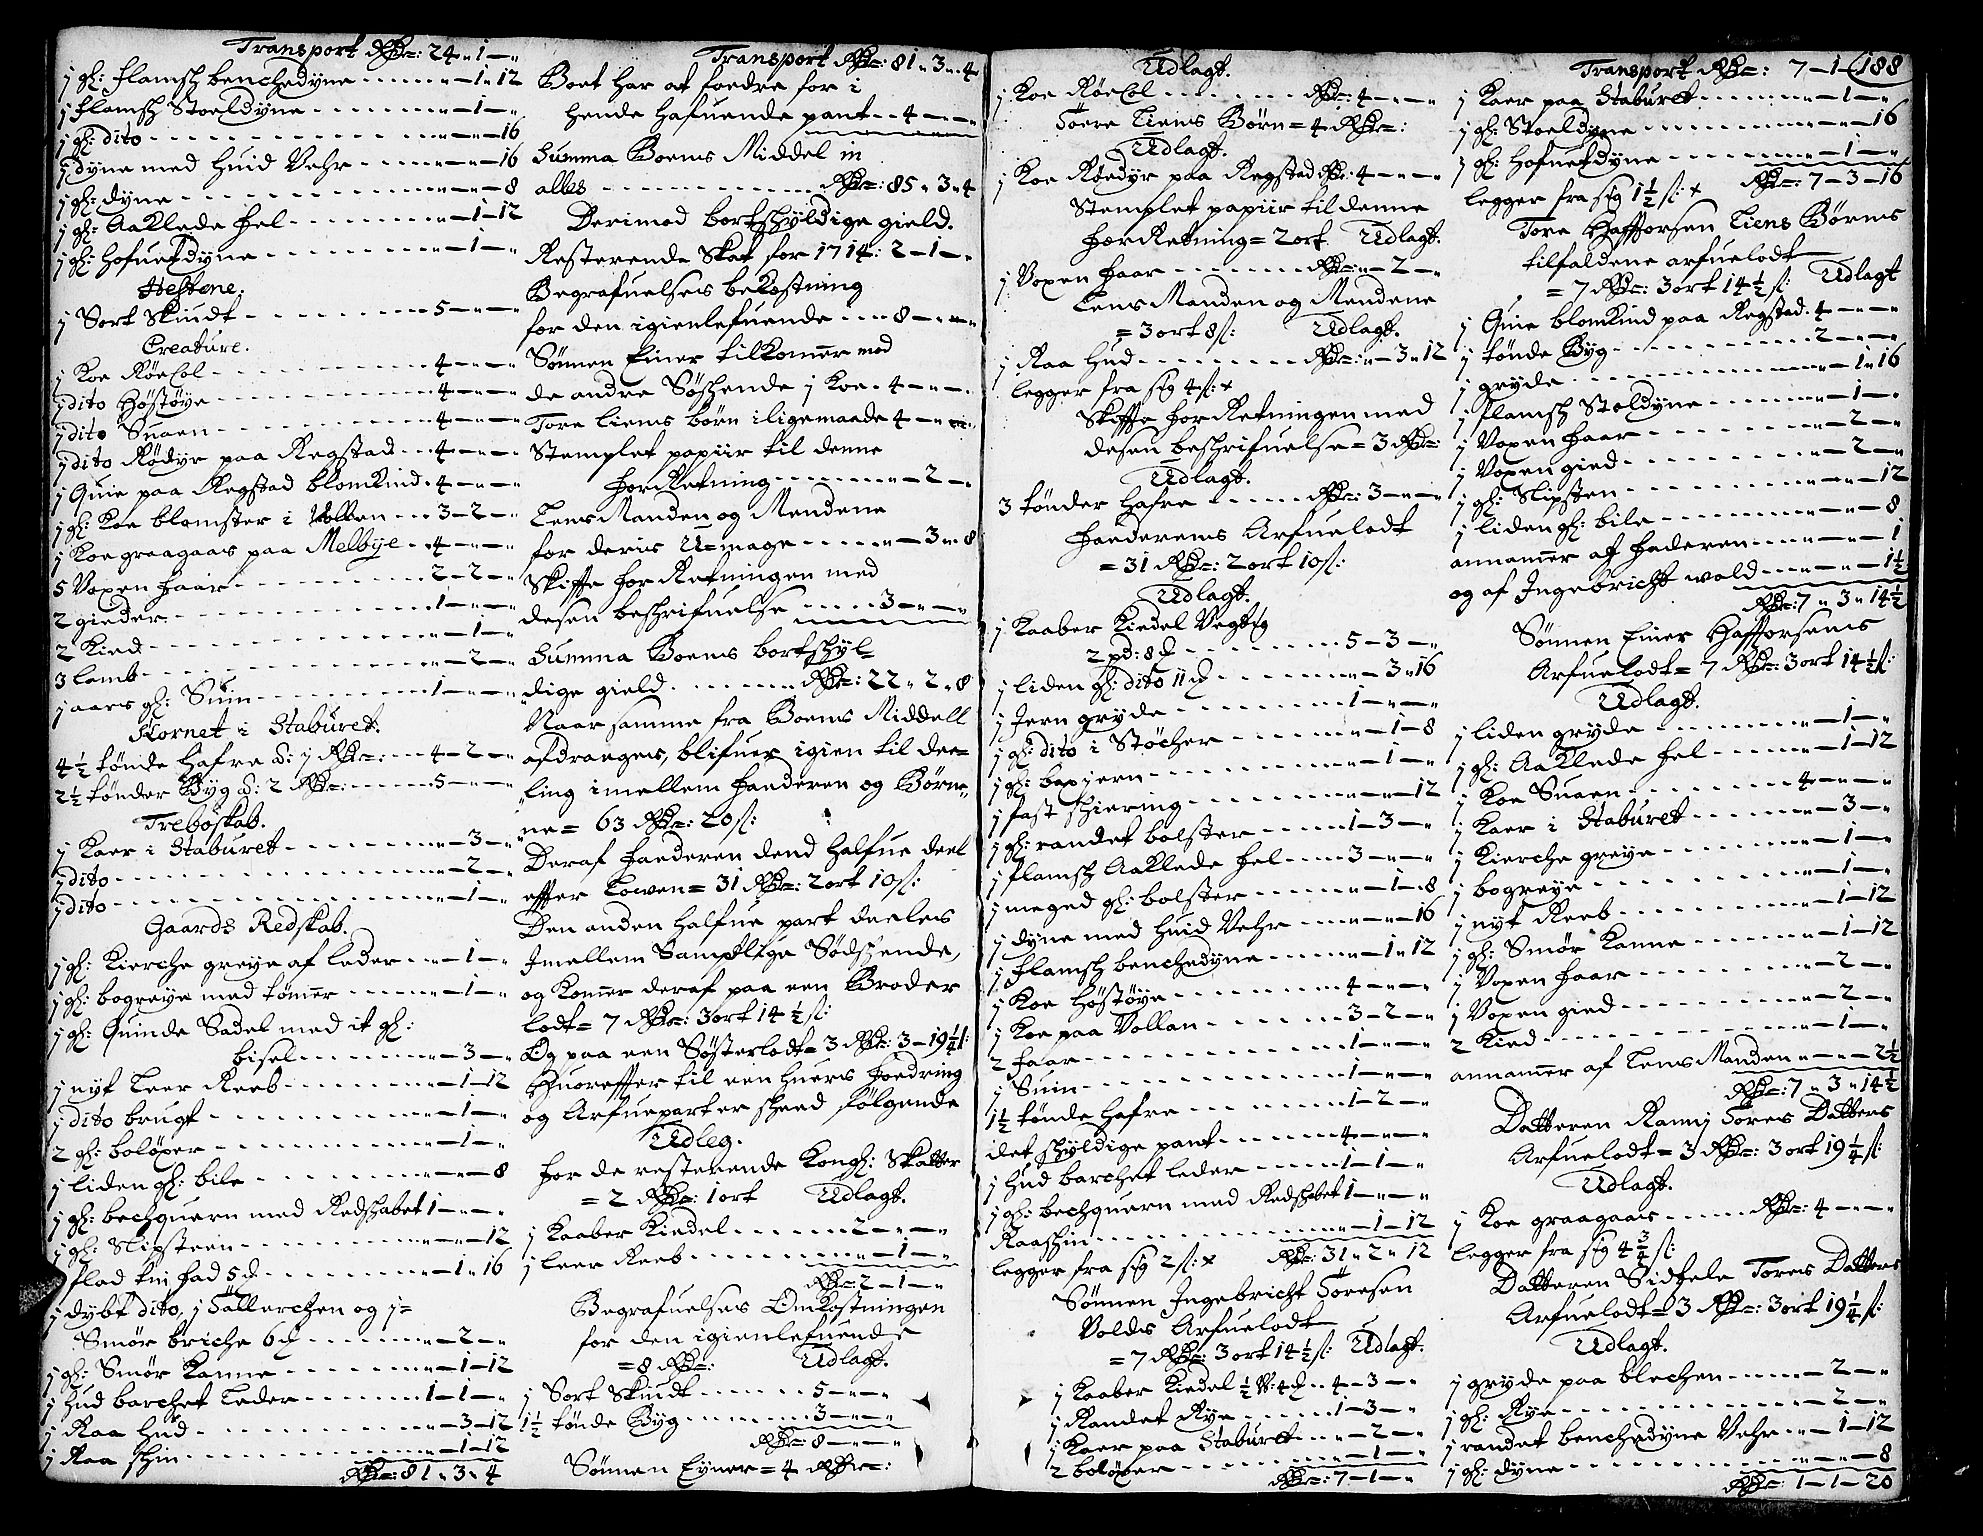 Transport Rdr: 24 " 1 — "
j gl: flamsch benchedyne — 1 " 12
j flamsch Stoeldyne — 1 — "
j gl: dito — 16
j dyne med Huid Vehr — 16
j gl: dyne — 8
j gl: Aaklede hel — 1 — 12
j gl: Hofuetdyne — 1 — "
Hestene.
j Sort Skiudt — 5 — " — "
Creature.
j Koe Röecol — 4 — " — "
j dito Höstöye — 4 — " — "
j dito Suaen — 4 — " — "
j dito Rödyr paa Regstad 4 — " — "
j Quie paa Regstad blomkind 4 — " — "
j gl: Koe blomster i Vollen 3 — 2 — "
j Koe graagaas paa Melbye 4 — " — "
5 Voxen faar — 2 — 2 — "
2 gieder — 1 — " — "
2 Kied — " — 1 — "
3 lamb — " — 2 — "
j aars gl: Suin — 1 — " — "
Kornet i Staburet.
4½ tönde Hafre a: j Rdr: — 4 — 2 — "
2½ tönder Byg a: 2 Rdr: — 5 — " — "
Treboskab.
j Kaer i Staburet — 3 — "
j dito — 2 — "
j dito — 1 — "
Gaards Redskab.
j gl: Kierche greye af leder — 1 — "
j gl: bogreye med tömer — 1 — "
j gl: Quinde Sadel med it gl:
bisel — 3 — "
j nyt Leer Reeb — 1 — 12
j dito brugt — 1 — "
2 gl: boløxer — 1 — "
j liden gl: bile — 8
j gl: bechquern med Redskabet 1 — " — "
j gl: Slipsteen — 12
j flad tin fad 5 d — 1 " 16
j dybt dito, j Tällerchen og j=
Smör briche 6 d — 2 — "
j gl: Smör Kanne — 1 — 12
j Hud barchet Leder — 1 — 1 — "
j Raa Hud — 3 — 12
j Raa skin — 1 — 12
Rdr: 81 " 3 " 4
Transport Rdr: 81 " 3 " 4
Boet har at fordre for i
hende hafuende pant — 4 — " — "
Summa Boens Middel in
alles — Rdr: 85 " 3 " 4
Derimod bortskyldige gield.
Resterende Skat for 1714: 2 — 1 — "
Begrafuelses bekostning
for den igienlefuende — 8 — " — "
Sönnen Einer tilkomer med
de andre Söskende j Koe 4 — " — "
Tore Liens börn i ligemaade 4 — " — "
Stemplet papiir til denne
forRetning — 2 — "
LensManden og Mendene
for deris U=mage — 3 " 8
Skifte forRetningen med
desen beskrifuelse — 3 — " — "
Summa Boens bortskyl=
dige gield — Rdr: 22 " 2 " 8
Naar samme fra Boens Middell
afdrages, blifuer igien til dee=
ling imellem faederen og Börne=
ne = 63 Rdr: 20 s:
Deraf faederen dend halfue deel
efter Lowen = 31 Rdr: 2 ort 10 s:
Den anden halfue part deeles
Imellem Samptlige Södskende,
og Komer deraf paa een Broder
lodt = 7 Rdr: 3 ort 14½ s:
Og paa een Söster lodt = 3 Rdr: 3 — 19¼ s:
Huorefter til een huers fordring
og Arfuepart er skeed fölgende
Udleg.
for de resterende Kongl: Skatter
= 2 Rdr: 1 ort Udlagt.
j Kaaber Kiedel — 2 — " — "
j leer Reeb — 1 — "
Rdr: 2 — 1 — "
Begrafuelses Omkostningen
for den igienlefuende
= 8 Rdr: Udlagt.
j Sort Skiudt — 5 — " — "
1½ tönde Byg — 3 — " — "
Rdr: 8 — " — "
Sönnen Eyner = 4 Rdr:
Udlagt.
j Koe Röecol — Rdr: 4 — " — "
Tore Liens Börn = 4 Rdr:
Udlagt.
j Koe Rödyr paa Regstad Rdr: 4 — " — "
Stemplet papiir til denne
forRetning = 2 ort Udlagt.
j Voxen faar — Rdr: " — 2 — "
LensManden og Mendene
= 3 ort 8 s: Udlagt.
j Raa Hud — Rdr: " — 3 " 12
legger fra sig 4 s: +
Skifte forRetningen med
desen beskrifuelse = 3 Rdr:
Udlagt.
3 tönder Hafre — Rdr: 3 — " — "
faederens Arfuelodt
= 31 Rdr: 2 ort 10 s:
Udlagt.
j Kaaber Kiedel Vegtig
2 pd: 8 d — 5 — 3 — "
j liden gl: dito 11 d — 3 " 16
j Jern gryde — 1 — " — "
j gl: dito i Stöcher — 1 — 8
j gl: baxjern — 1 — "
j fast skiering — 12
j gl: randet bolster — 1 — 3 — "
j flamsch Aaklede hel — 3 — " — "
j meged gl: bolster — 1 — 8
j dyne med Huid Vehr — 16
j flamsch benchedyne — 1 " 12
j Koe Höstöye — 4 — " — "
j Koe paa Vollan — 3 — 2 — "
2 faar — 1 — " — "
j Suin — 1 — " — "
1½ tönde Hafre — 1 — 2 — "
idet skyldige pant — 4 — " — "
j Hud barchet leder — 1 — 1 — "
j gl: bechquern med Redskabet 1 — " — "
Raaskin — 1 — 12
legger fra sig 2 s: + Rdr: 31 " 2 " 12
Sönnen Ingebricht Toresen
Volds Arfuelodt
= 7 Rdr: 3 ort 14½ s: Udlagt.
j Kaaber Kiedel ½ W: 4 d — 4 — 3 — "
j Randet Rye — 1 — 3 — "
j Kaer paa Staburet — 2 — "
2 boløxer — 1 — "
Rdr: 7 — 1 — "
188
Transport Rdr: 7 — 1 — "
j Kaer paa Staburet — 1 — "
j gl: Stoeldyne — 16
j gl: Hofuetdyne — 1 — "
legger fra sig 1½ s: + Rdr: 7 — 3 — 16
Tore Haftorsen Liens Börns
tilfaldene arfuelodt
= 7 Rdr: 3 ort 14½ s: Udlagt
j Quie blomkind paa Regstad 4 — " — "
j tönde Byg — 2 — " — "
j gryde — 1 " 16
j flamsch Stoldyne — 1 — "
j Voxen faar — 2 — "
j Voxen gied — 2 — "
j gl: Slipsten — 12
j liden gl: bile — 8
annamer af faderen — 1
og af Ingebricht wold — 1½
Rdr: 7 " 3 " 14½
Sönnen Einer Haftorsens
Arfuelodt = 7 Rdr: 3 ort 14½ s:
Udlagt.
j liden gryde — 1 — "
j gl: Aaklede hel — 1 — 12
j Koe Suaen — 4 — " — "
j Kaer i Staburet — 3 — "
j Kierche greye — 1 — "
j bogreye — 1 — "
j nyt Reeb — 1 — 12
j gl: Smör Kanne — 1 — 12
j Voxen faar — 2 — "
j Voxen gied — 2 — "
2 Kied — 1 — "
annamer af LensManden — 2½
Rdr: 7 " 3 " 14½
Datteren Rannj Tores Datters
Arfuelodt = 3 Rdr: 3 ort 19¼ s:
Udlagt.
j Koe graagaas — Rdr: 4 — " — "
legger fra sig 4¾ s:
Datteren Sidsele Tores Datters
Arfuelodt = 3 Rdr: 3 ort 19¼ s:
Udlagt.
j gryde paa blechen — 2 — "
j gl: Rye — 2 — "
j randet benchedyne Vehr — 1 — 12
j gl: dyne — 8
Rdr: 1 — 1 — 20